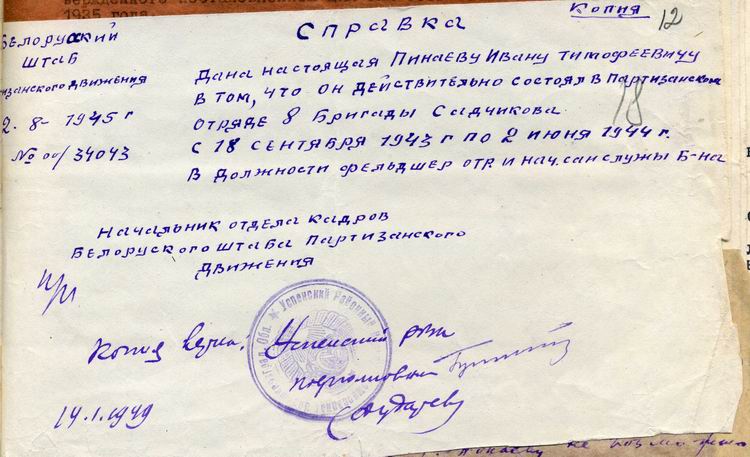 1935 года.
Копия
12
СПРАВКА
БЕЛОРУССКИЙ
ШТАБ
ИЗАНСКОГО ДВИЖЕНИЯ
2. 8- 1945 г
№ 00/34043
ДАНА НАСТОЯЩАЯ ПИНАЕВУ ИВАНУ ТИМОФЕЕВИЧУ
В ТОМ, ЧТО ОН ДЕЙСТВИТЕЛЬНО СОСТОЯЛ В ПАРТИЗАНСКОМ
ОТРЯДЕ 8 БРИГАДЫ САДЧИКОВА
18
С 18 СЕНТЯБРЯ 1943 г ПО 2 ИЮНЯ 1944 г.
В ДОЛЖНОСТИ ФЕЛЬДШЕР ОТР И НАЧ. САНСЛУЖБЫ Б-НА
НАЧАЛЬНИК ОТДЕЛА КАДРОВ
БЕЛОРУСКОГО ШТАБА ПАРТИЗАНСКОГО
ДВИЖЕНИЯ
п/п
Копия верна: Успенский рвк
подполковник
14.1.1949
Успенский Районный
не возможно